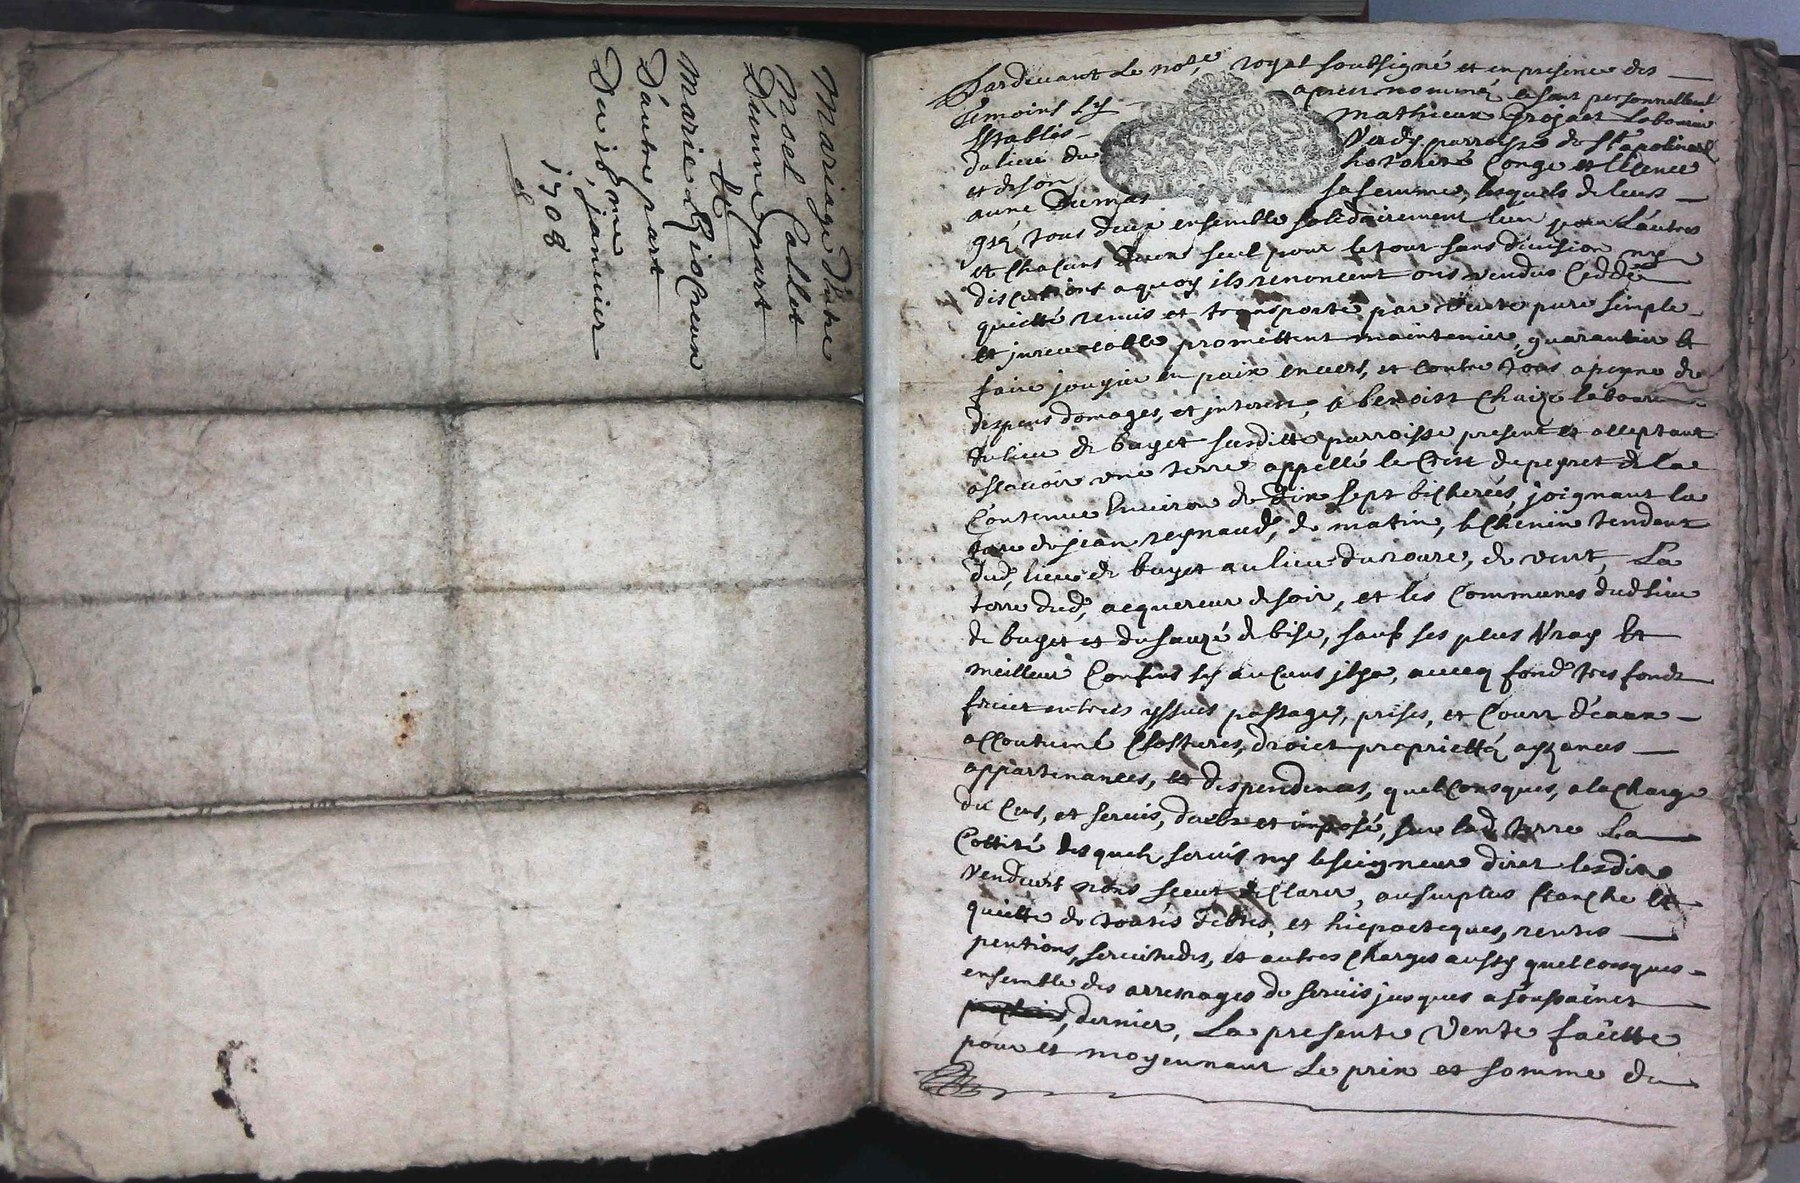 Mariage d'entre
Noel Callet
D'unne part
Et
Marie
D'autre part
Du 16me janvier
1708
Pardevant Le nore royal soubsigné et en presence des
temoins sy apres nommé personnellemt
Establis mathieux Labour
du lieu du parroisse de St apolinard
et de son hotorité Conge et licence
anne Dumas sa femme, lesquels de leurs
gré tous deux ensemble solidairement l'un pour l'autres
et chacuns deux seul pour le tout sans division ny
discutions a quoy ils renoncent ons vendus Ceddé
quitté remis et transporté par vente pure simple
et jrrevocable promettent maintenir, guarantir et
faire jouyir en paix envers, et contre tous a peyne de
despens domages, et jnterest, a benoist Chaize laboureur
du lieu de buget susditte parroisse present et acceptant
assavoir une terre appellé le Crest de peyret de la
Contenue Environ de dix sept bicherées, joignant la
terre de jean reynaud, de matin, le Chemin tendant
dud, lieu de buget au lieu du roure, de vent, La
terre dud, acquereur de soir, et les Communes dud lieu
de buget et du sauzé de bise, sauf ses plus vray Et
meilleur Confins sy aucuns jl y a, avecq fond tres fonds
fruict entrées yssues passages, prises, et Cours d'eaux
accoutumé Clostures, droict proprietté
appartenances, et despendences, quelConsques, a la Charge
du Cens, et servis, deubs et imposé, sur lad, terre La
Cottité desquels servis ny le seigneur direct lesdits
Vendeurs nons sceut declarer, au surplus franche Et
quitte de toutes debtes, et hiepoteques, rentes
pentions, servitudes, et autres Charges aussy quelconsques
ensemble des arrerages de servis jusques a toussaincts
dernier, La presente Vente faitte
pour et moyennant Le prix et somme de